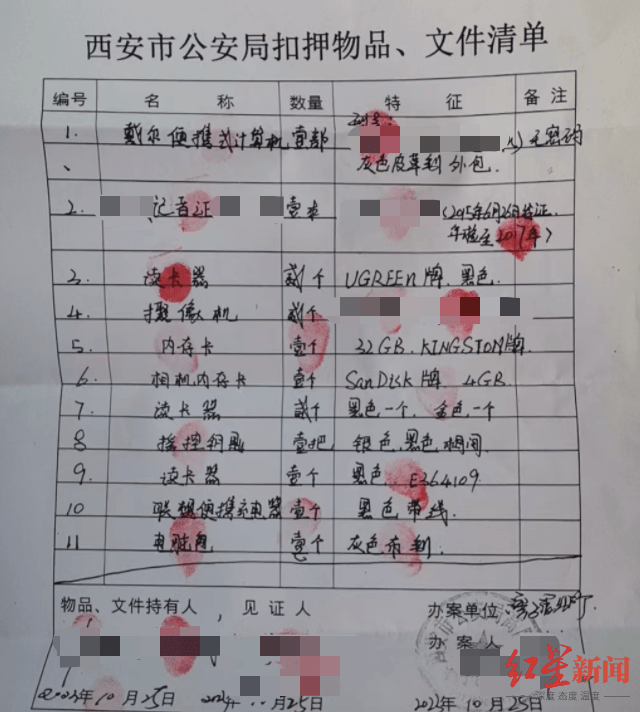 西安市公安局扣押物品、文件清单
编号 名称 数量 特征 备注
1. 戴尔便携式计算机 壹部 型号: 无密码
、 灰色皮革制外包.
2. 记者证 壹本 (2015年6月26日发证.
年检至2017年)
3. 读卡器 贰个 UGREEN牌.黑色.
4. 摄像机 贰个
5. 内存卡 壹个 32GB.KINGSTON牌.
6. 相机内存卡 壹个 SanDisk牌 4GB.
7 读卡器 贰个 黑色一个,金色一个
8 壹把 银色.黑色相间
9. 读卡器 壹个 黑色 E364109
10 联想便携充电器 壹个 黑色带线.
11 电脑包 壹个 灰色布制.
物品、文件持有人,见证人 办案单位
办案人
2023年10月25日 25日 2023年10月25日
西安市公安局
红星新闻
深度 态度 温度